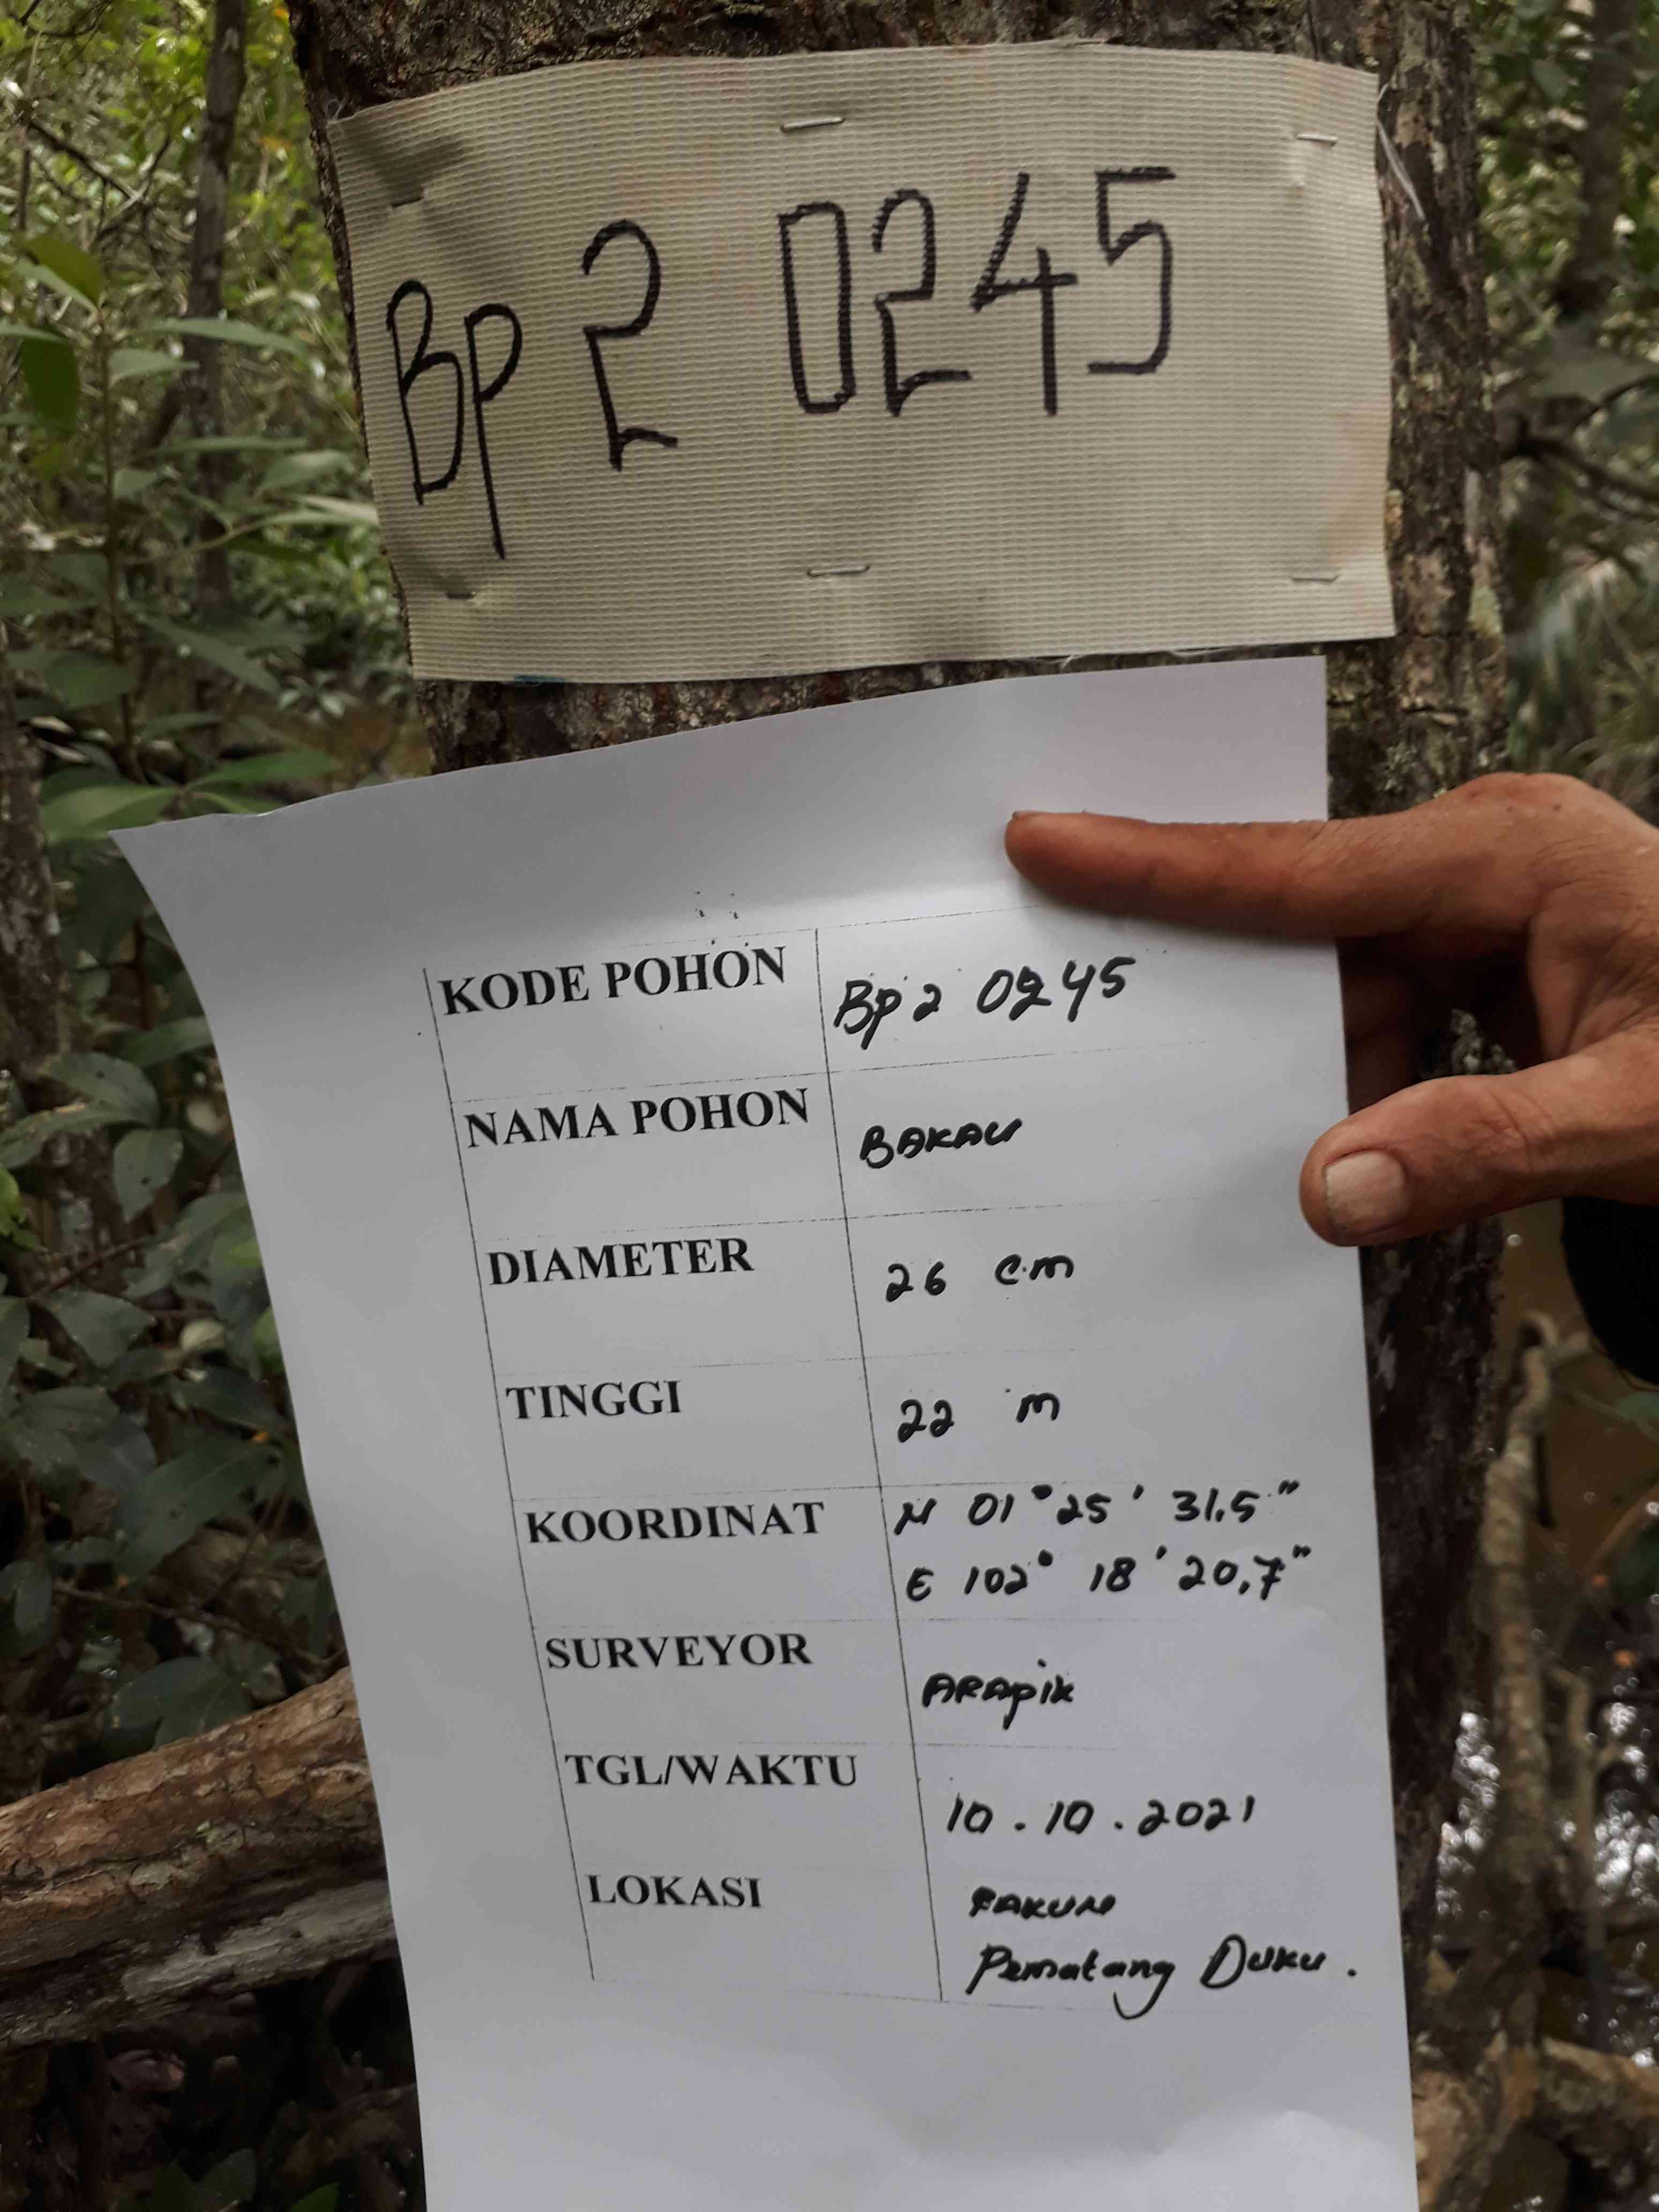 Bp 2 0245
KODE POHON Bp 2 0245
NAMA POHON BAKAU
DIAMETER 26 cm
TINGGI 22 m
KOORDINAT N 01° 25' 31.5"
E 102° 18' 20,7"
SURVEYOR ARApik
TGL/WAKTU 10.10.2021
LOKASI
Pematang Duku.